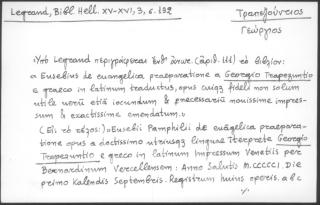 Legrand, Bibl. Hell. XV-XVI, 3, σ. 192
Τραπεζούντιος
Γεώργιος
Ὑπὸ Legrand περιγράφεται ἐνθ' ἀνωτ. (ἀριθ. 111) τὸ βιβλίον:
« Eusebius de euangelica praeparatione a Georgio Trapezuntio
e graeco in latinum traductus, opus cuiqz fideli non solum
utile uerū etiā iocundum & pnecessariū nouissime impres-
sum & exactissime emendatum. »
(Εἰς τὸ τέλος:) « Eusebii Pamphilii de euāgelica praepara-
tione opus a doctissimo utriusqz linguae īterprete Georgio
Trapezuntio e greco in latinum Impressum Venetiis per
Bernardinum Vercellensem: Anno Salutis M.CCCCCI. Die
primo Kalendis Septembris. Registrum huius operis. a b c